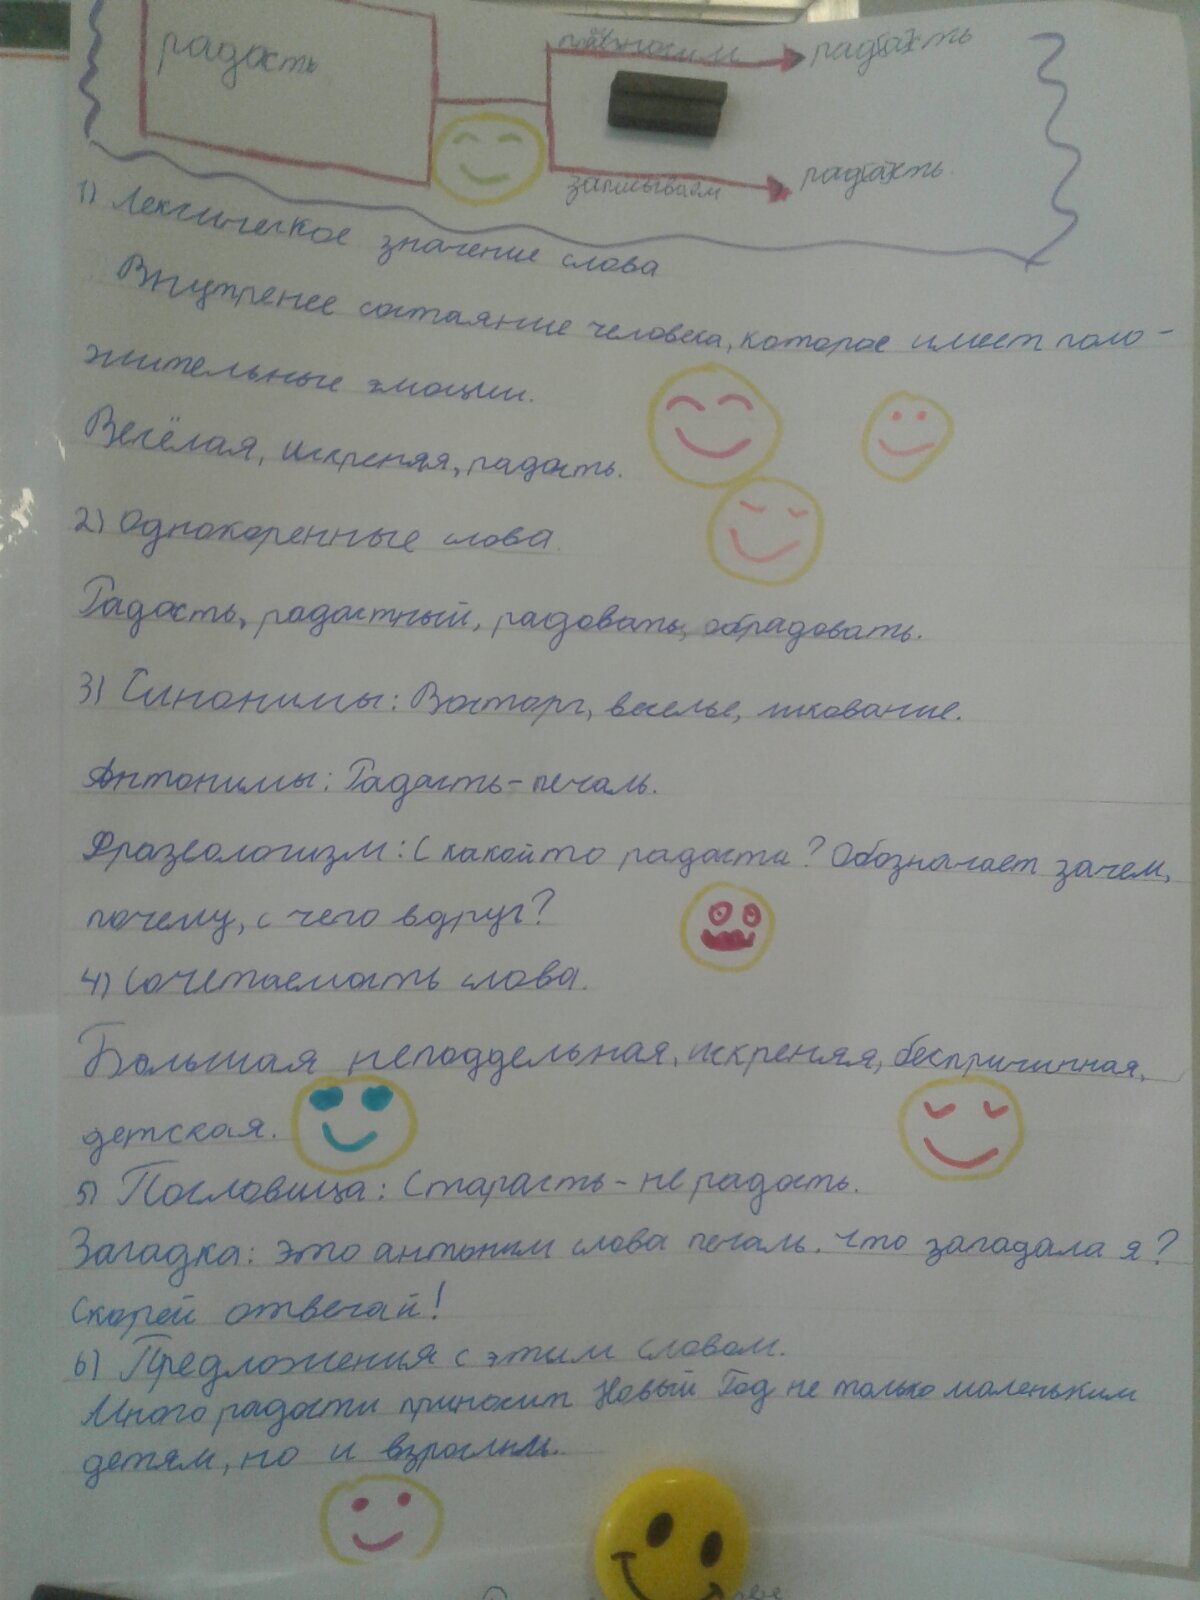 радость
произносим
записываем
1) Лексическое значение слова
Внутренее состаяние человека, которое имеет поло-
жительные эмоции.
Весёлая, искреняя, радость.
2) Однокоренные слова.
Радость, радостный, радовать, обрадовать.
3) Синонимы: Восторг, веселье, ликование.
Антонимы: Радость - печаль.
Фразеологизм: С какой то радости? Обозначает зачем,
почему, с чего вдруг?
4) Сочетаемость слова.
Большая неподдельная, искреняя, беспричинная,
детская.
5) Пословица: Старасть - не радость.
Загадка: это антоним слова печаль. Что загадала я?
Скорей отвечай!
6) Предложения с этим словом.
Много радости приносит Новый Год не только маленьким
детям, но и взрослым.